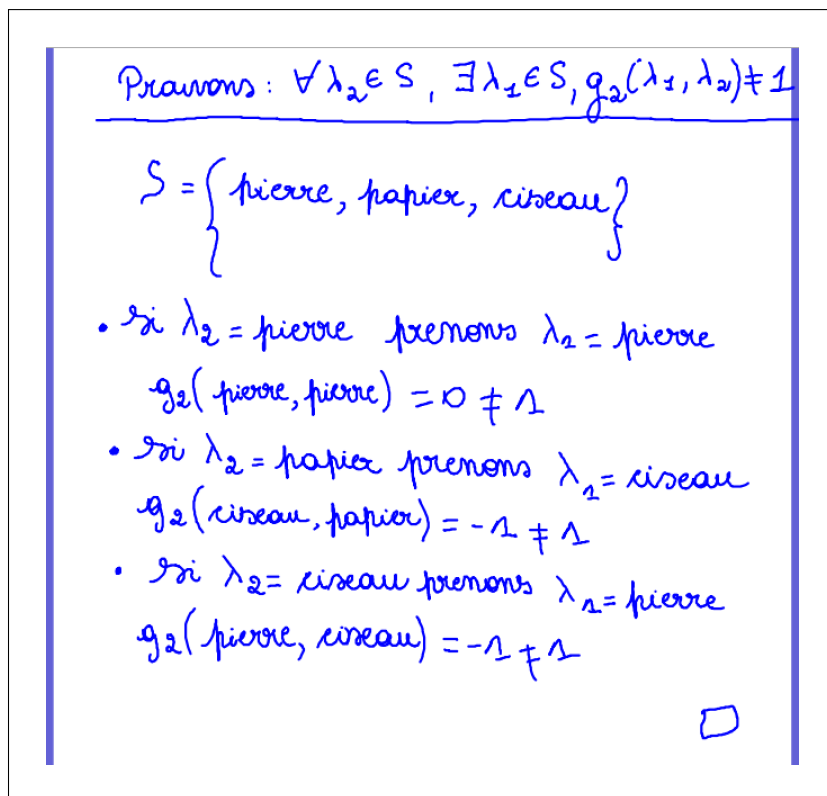 Prouvons : ∀ λ₂ ∈ S, ∃ λ₁ ∈ S, g₂(λ₁, λ₂) ≠ 1
S = { pierre, papier, ciseau }
• si λ₂ = pierre prenons λ₁ = pierre
g₂( pierre, pierre ) = 0 ≠ 1
• si λ₂ = papier prenons λ₁ = ciseau
g₂( ciseau, papier ) = -1 ≠ 1
• si λ₂ = ciseau prenons λ₁ = pierre
g₂( pierre, ciseau ) = -1 ≠ 1
□